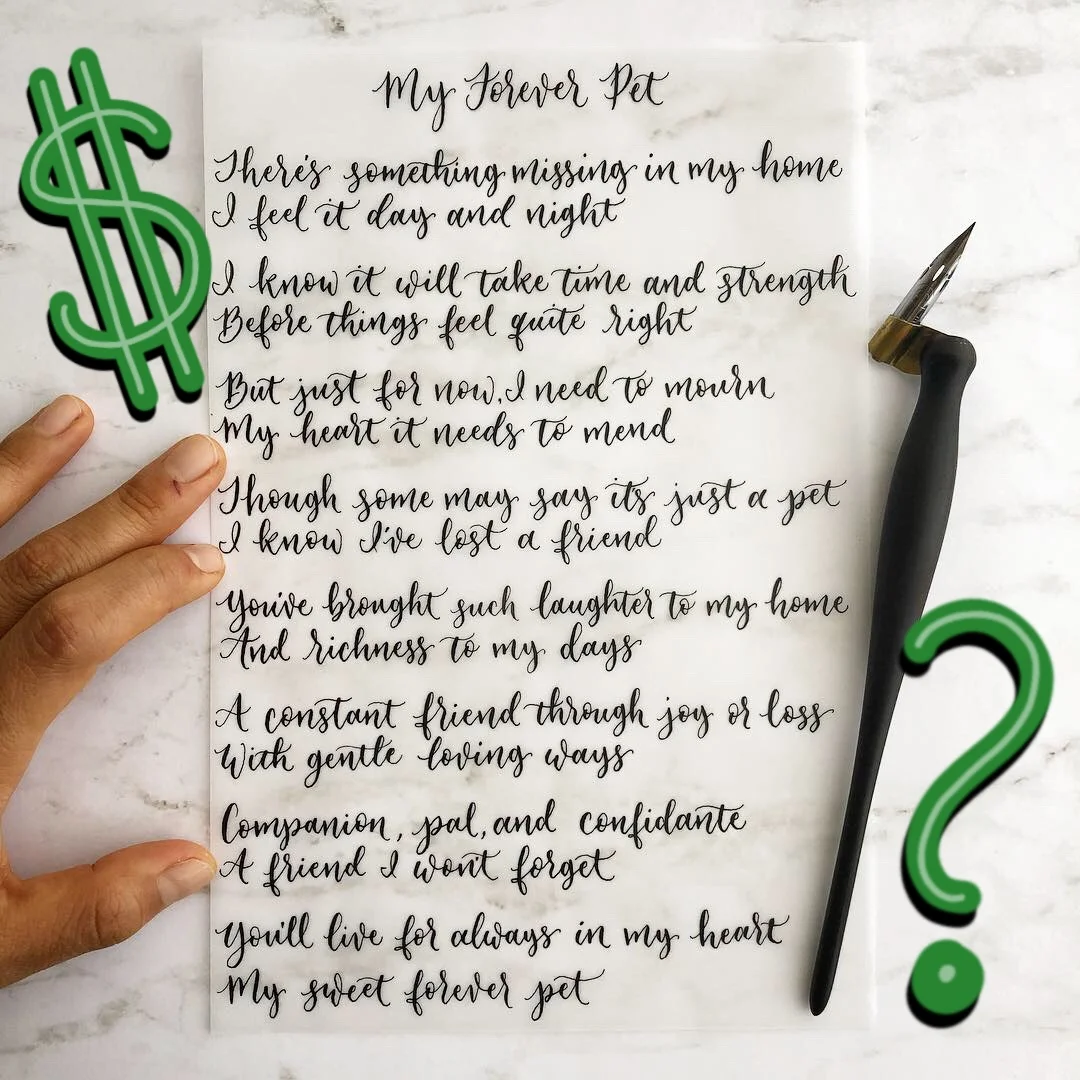 My Forever Pet
There's something missing in my home
I feel it day and night
I know it will take time and strength
Before things feel quite right
But just for now, I need to mourn
My heart it needs to mend
Though some may say its just a pet
I know I've lost a friend
You've brought such laughter to my home
And richness to my days
A constant friend through joy or loss
With gentle loving ways
Companion, pal, and confidante
A friend I wont forget
You'll live for always in my heart
My sweet forever pet
$
?